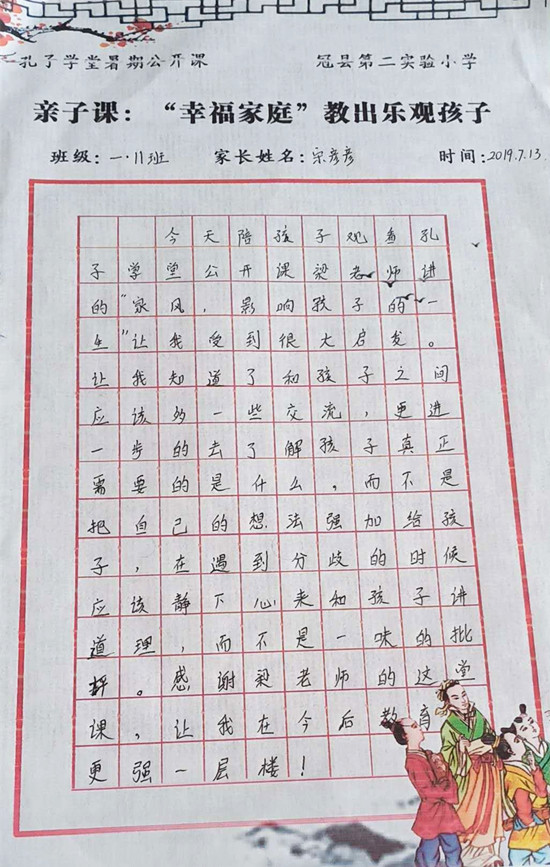 孔子学堂暑期公开课 冠县第二实验小学
亲子课：“幸福家庭”教出乐观孩子
班级：一·11班 家长姓名：宋彦彦 时间：2019.7.13.
今天陪孩子观看孔
子学堂公开课梁老师讲
的“家风，影响孩子的一
生”让我受到很大启发。
让我知道了和孩子之间
应该多一些交流，更进
一步的去了解孩子真正
需要的是什么，而不是
把自己的想法强加给孩
子，在遇到分歧的时候
应该静下心来和孩子讲
道理，而不是一味的批
评。感谢梁老师的这堂
课，让我在今后教育
更强一层楼！